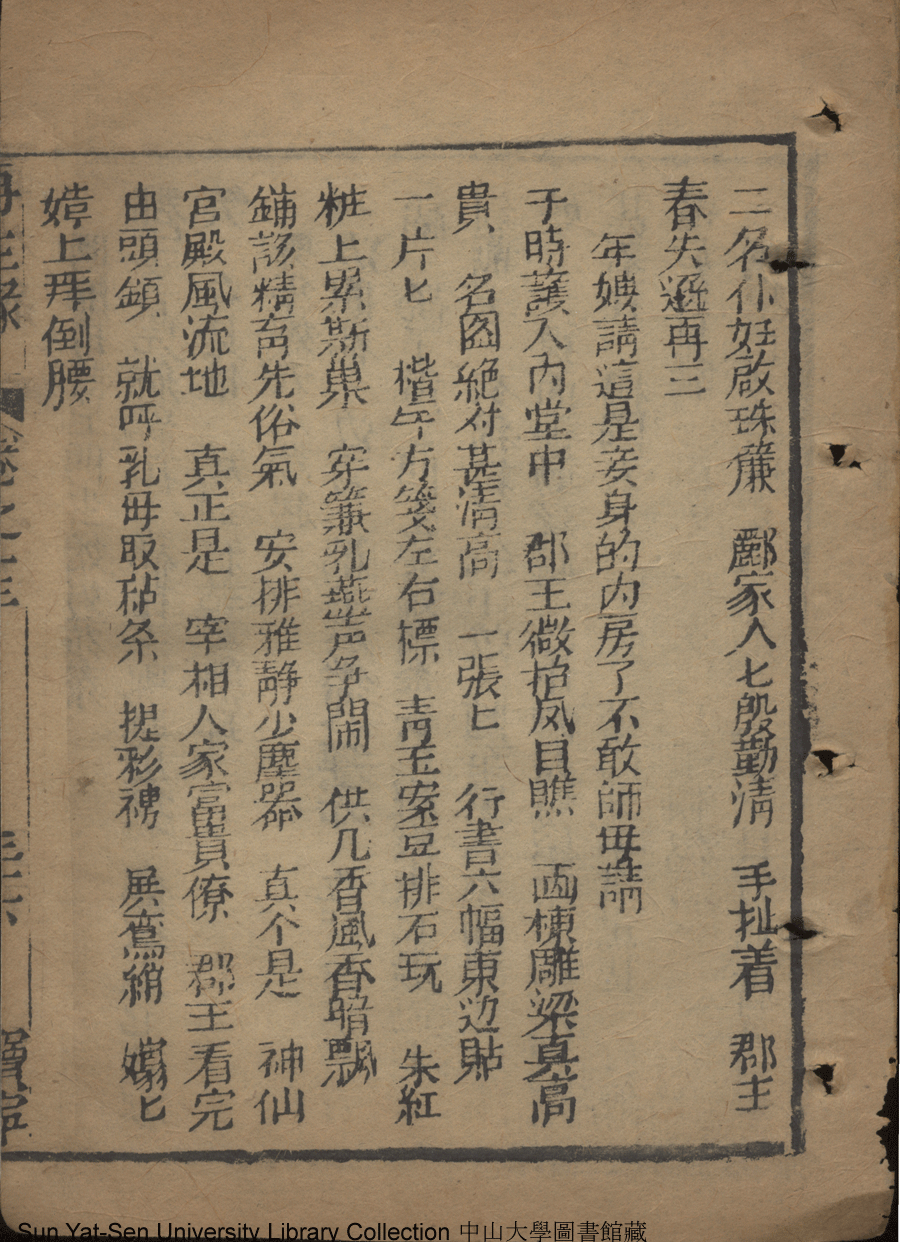 二名仆妊啟珠簾　酈家人七殷勤清　手扯着　郡主
春失遜再三
年嫂請這是妾身的内房了不敢師母請
于時護入内堂中　郡王微抬凤目瞧　画棟雕梁真高
貴　名图絶对甚清高　一張匕　行書六幅東边貼
一片匕　楷午方箋左右標　青玉案豆排石玩　朱紅
粧上累斯巢　穿簾乳燕声争鬧　供几香風香暗飄
鋪設精奇先俗氣　安排雅靜少塵器　真个是　神仙
宮殿風流地　真正是　宰相人家富貴僚　郡主看完
由頭鎖　就呼乳毋取毡条　提彩裙　展鸞綃　嬝匕
婷上拜倒腰
再生緣　卷之十三　三十六　寶寧
Sun Yat-Sen University Library Collection 中山大學圖書館藏